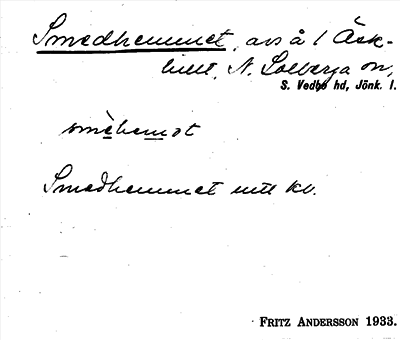 Smedhemmet, avs å 1 Äsk-
hult, N. Solberga sn,
S. Vedbo hd, Jönk. l.
smèhemot
Smedhemmet utt kv.
FRITZ ANDERSSON 1933.